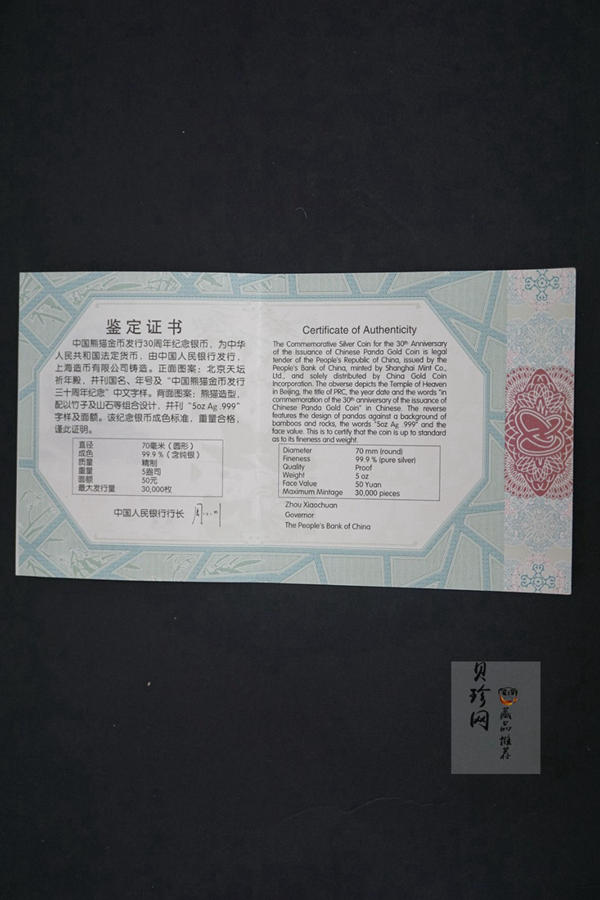 鉴定证书
中国熊猫金币发行30周年纪念银币，为中华
人民共和国法定货币，由中国人民银行发行，
上海造币有限公司铸造。正面图案：北京天坛
祈年殿，并刊国名、年号及“中国熊猫金币发行
三十周年纪念”中文字样。背面图案：熊猫造型，
配以竹子及山石等组合设计，并刊“5oz Ag .999”
字样及面额。该纪念银币成色标准，重量合格，
谨此证明。
直径 70毫米（圆形）
成色 99.9％（含纯银）
质量 精制
重量 5盎司
面额 50元
最大发行量 30,000枚
中国人民银行行长
Certificate of Authenticity
The Commemorative Silver Coin for the 30th Anniversary
of the Issuance of Chinese Panda Gold Coin is legal
tender of the People's Republic of China, issued by the
People's Bank of China, minted by Shanghai Mint Co.,
Ltd., and solely distributed by China Gold Coin
Incorporation. The obverse depicts the Temple of Heaven
in Beijing, the title of PRC, the year date and the words "in
commemoration of the 30th anniversary of the issuance of
Chinese Panda Gold Coin" in Chinese. The reverse
features the design of pandas against a background of
bamboos and rocks, the words "5oz Ag .999" and the
face value. This is to certify that the coin is up to standard
as to its fineness and weight.
Diameter 70 mm (round)
Fineness 99.9 % (pure silver)
Quality Proof
Weight 5 oz
Face Value 50 Yuan
Maximum Mintage 30,000 pieces
Zhou Xiaochuan
Governor
The People's Bank of China
贝珍网
藏品推荐